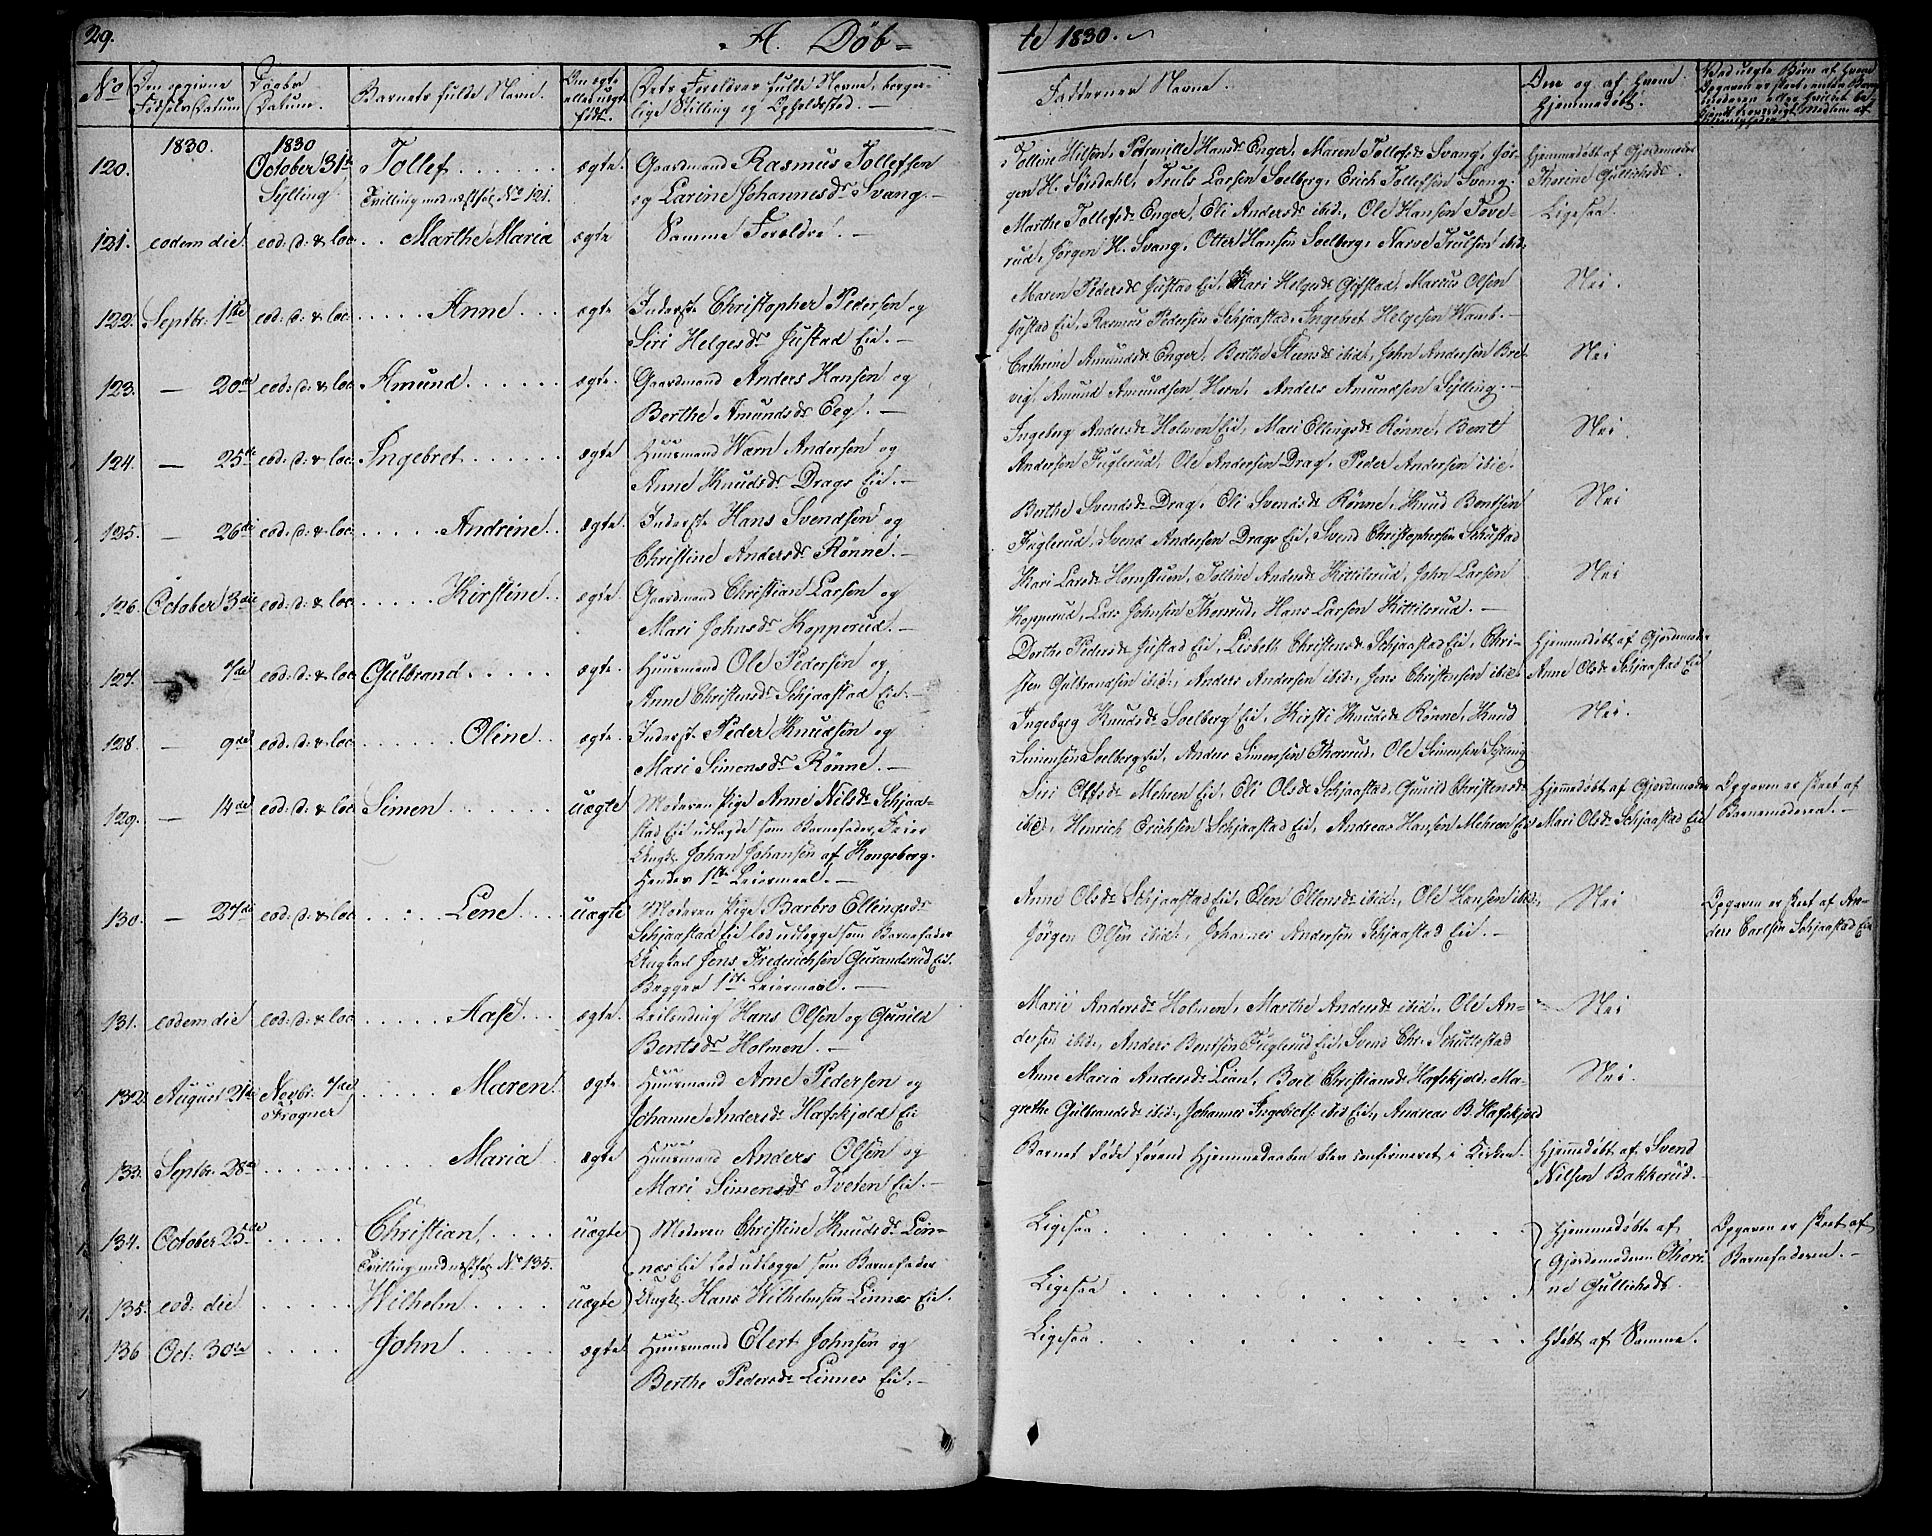 29.
A. Døb-
te 1830.
No
Den opgivne
Fødsels Datum
Daabs
Datum.
Barnets fulde Navn.
Om ægte
eller uægte
født.
Dets Forældres fulde Navne, borger-
lige Stilling og Opholdssted.
Faddernes Navne.
Om og af hvem
hjemmedøbt.
Ved uægte Børn af hvem
Opgaven er skeet, enten Barne-
1830.
1830
120.
October 31te
Sylling
Tollef
Tvilling med næstføl. No 121
ægte.
Gaardmand Rasmus Tollefsen
og Larine Johannesdr Svang.
Tolline Hilsen, Pedernille Hansdr Enger, Maren Tollefsdr Svang, Jör-
gen H. Sörsdahl, Truls Larsen Soelberg, Erich Tollefsen Svang.
hjemmedøbt af Gjordemoder
Thorine Gullichsdr.
121.
eodem die
eod: d: & loc
Marthe Maria
ægte
Samme Forældre.
Marthe Tollefsdr Enger, Eli Andersdr ibid:, Ole Hansen Tove-
rud, Jörgen H. Svang, Otter Hansen Soelberg, Narve Trulsen ibid:
Ligesaa.
122.
Septbr: 1ste
eod: d: & loc
Anne
ægte
Inderst Christopher Pedersen og
Siri Helgesdr Justad Eie.
Maren Pedersdr Justad Eie, Mari Helgesdr Gifstad, Marcus Olsen
Justad Eie, Rasmus Pedersen Schjaastad, Ingebret Helgesen Wamb.
Nei.
123.
— 20de
eod: d: & loc
Amund
ægte.
Gaardmand Anders Hansen og
Berthe Amundsdr Eeg.
Cathrine Amundsdr Enger, Berthe Steensdr ibid:, John Andersen Bre-
vig, Amund Amundsen Horn, Anders Amundsen Sylling.
Nei
124.
— 25de
eod: d: & loc
Ingebret
ægte
Huusmand Wærn Andersen og
Anne Knudsdr Drags Eie.
Ingeborg Andersdr Holmen Eie, Mari Ellingsdr Rønne, Bent
Andersen Fuglerud, Ole Andersen Drag, Peder Andersen ibid.
Nei.
125.
— 26de
eod: d: & loc
Andrine
ægte.
Inderst Hans Svendsen og
Christine Andersdr Rønne.
Berthe Svendsdr Drag, Eli Svendsdr Rønne, Knud Bentsen
Fuglerud, Svend Andersen Drags Eie, Svend Christophersen Schustad
Nei
126.
October 3die
eod: d: & loc
Kirstine
ægte.
Gaardmand Christian Larsen og
Mari Johnsdr Kopperud.
Kari Larsdr Hornstuen, Tolline Andersdr Kittilsrud, John Larsen
Kopperud, Lars Johnsen Thorrud, Hans Larsen Kittilsrud.
Nei
127.
— 7de
eod: d: & loc
Gulbrand
ægte.
Huusmand Ole Pedersen og
Anne Christensdr Schjaastad Eie.
Dorthe Pedersdr Justad Eie, Lisbeth Christensdr Schjaastad Eie, Chri-
sten Gulbrandsen ibid:, Anders Andersen ibid:, Jens Christensen ibid:
Hjemmedøbt af Gjordemoder
Anne Olsdr Schjaastad Eie
128.
— 9de
eod: d: & loc
Oline
ægte.
Inderst Peder Knudsen og
Mari Simensdr Rønne.
Ingeborg Knudsdr Soelberg Eie, Kirsti Knudsdr Rønne, Knud
Simensen Soelberg Eie, Anders Simensen Thorrud, Ole Simensen Sylling
Nei.
129.
— 14de
eod: d: & loc
Simen
uægte
Moderen Pige Anne Nilsdr Schjaa-
stad Eie udlagde som Barnefader, Feier
Ungkr Johan Johansen af Kongsberg.
Hendes 1ste Leiermaal.
Siri Olsdr Mehren Eie, Eli Olsdr Schjaastad, Gunild Christensdr
ibid:, Henrich Erichsen Schjaastad Eie, Andreas Hansen Mehren Eie
Hjemmedøbt af Gjordemoder
Mari Olsdr Schjaastad Eie
Opgaven er skeet af
Barnemoderen.
130.
— 27de
eod: d: & loc
Lene
uægte
Moderen Pige Barbro Ellingsdr
Schjaastad Eie lod udlægge som Barnefader
Ungkarl Jens Frederichsen Gurandsrud Eie.
Begges 1ste Leiermaal.
Anne Olsdr Schjaastad Eie, Olen Ellensdr ibid:, Ole Hansen ibid:,
Jörgen Olsen ibid:, Johannes Andersen Schjaastad Eie.
Nei
Opgaven er skeet af An-
ders Carlsen Schjaastad Eie
131.
eodem die
eod: d: & loc
Aase
ægte.
Leilending Hans Olsen og Gunild
Bentsdr Holmen.
Marie Andersdr Holmen, Marthe Andersdr ibid:, Ole An-
dersen ibid:, Anders Bentsen Fuglerud Eie, Svend Chr. Schuttestad
Nei
132.
August 21de
Novbr. 7de
Frogner
Maren
ægte
Huusmand Arne Pedersen og
Johanne Andersdr Hafskjold Eie
Anne Maria Andersdr Lian, Boel Christiansdr Hafskjold, Ma-
grethe Gulbrandsdr ibid:, Johannes Ingebretsen ibid Eie, Andreas B. Hafskjold
Nei.
133.
Septbr. 28de
Maria
ægte
Huusmand Anders Olsen og
Mari Simensdr Tveten Eie.
Barnet døde førend Hjemmedaaben blev confirmeret i Kirken.
Hjemmedøbt af Svend
Nilsen Bakkerud.
134.
October 25de
Christian
Tvilling med næstføl. No 135.
uægte
Moderen Christine Knudsdr Lin-
nes Eie lod udlægge som Barnefader
Ligesaa
Hjemmedøbte af
Gjordemoderen Thori-
ne Gullichsdr.
Opgaven er skeet af
Barnefaderen.
135.
eod: die
Wilhelm
uægte
Ungkr. Hans Wilhelmsen Linnes Eie.
Ligesaa
136
Oct. 30te
John
ægte
Huusmand Elert Johnsen og
Berthe Pedersdr Linnes Eie.
Ligesaa
Hdøbt af Samme.